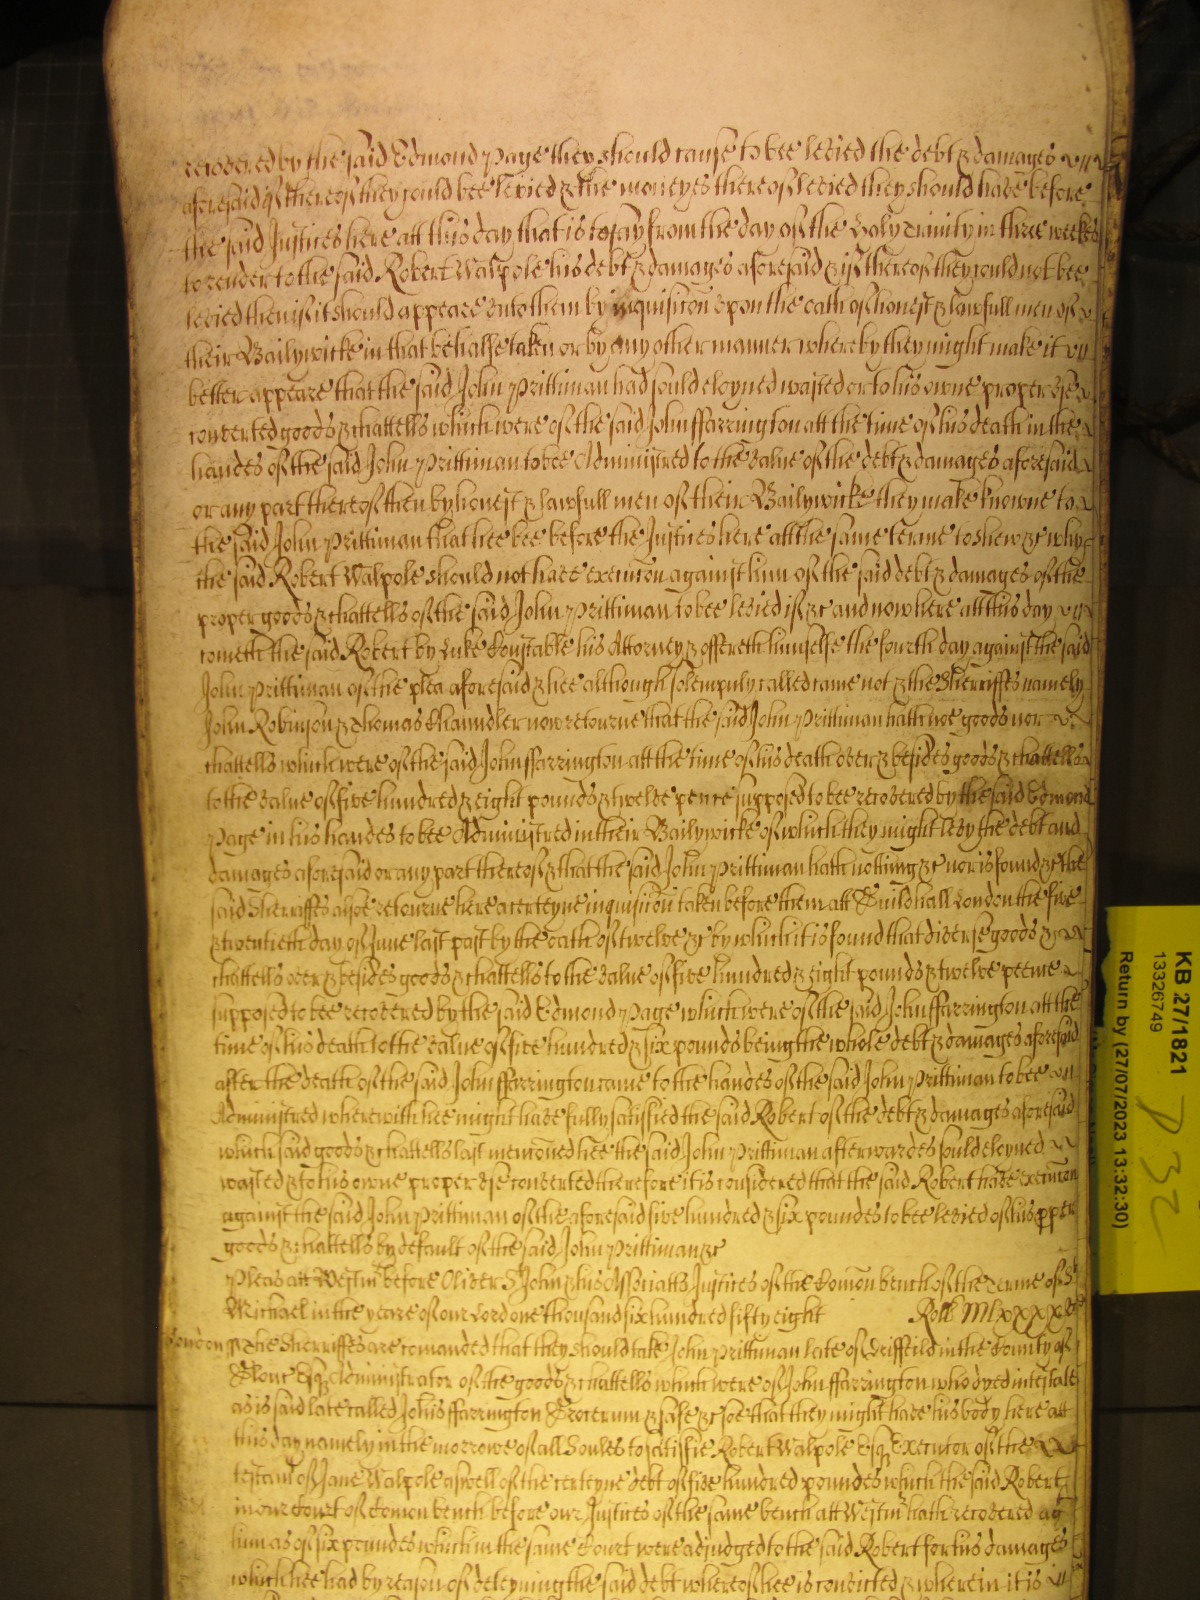 recovered by the said Edmond Page they should cause to bee levied the debt & damages
aforesaid if thereof they could bee levied & the moneyes thereof levied they should have before
the said Justices here att this day that is to say from the day of the Holy Trinity in three weekes
to render to the said Robert Walpole his debt & damages aforesaid & if thereof they could not bee
levied then if it should appeare unto them by inquisicon upon the oath of honest & lawfull men of
their Bailywicke in that behalfe taken or by any other manner whereby they might make it
better appeare that the said John Prittiman had sould eloyned wasted or to his owne proper use
converted goods & chattells which were of the said John ffarrington att the time of his death in the
handes of the said John Prittiman to bee Administred to the value of the debt & damages aforesaid
or any part thereof then by honest & lawfull men of their Bailywicke they make knowne to
the said John Prittiman that hee bee before the Justices here att the same terme to shew &c why
the said Robert Walpole should not have execucon against him of the said debt & damages of the
proper goods & chattells of the said John Prittiman to bee levied if &c and now here att this day
cometh the said Robert by Luke Constable his Attorney & offereth himselfe the fourth day against the said
John Prittiman of the plea aforesaid & hee although solempnly called came not & the Sherriffes namely
John Robinson & Thomas Chaundler now retourne that the said John Prittiman hath noe goods nor
chattells which were of the said John ffarrington att the time of his death over & besides goods & chattells
to the value of five hundred & eight pounds & twelve pence supposed to bee recovered by the said Edmond
Page in his handes to bee Administred in their Bailywicke of which they might levy the debt and
damages aforesaid or any part thereof & that the said John Prittiman hath nothing &c nor is found &c the
said Sherriffes alsoe retourne here a certeyne inquisicon taken before them att Guildhall London the five
& twentieth day of June last past by the oath of twelve &c by which it is found that diverse goods &
chattells over & besides goods & chattells to the value of five hundred & eight pounds & twelve peence
supposed to bee recovered by the said Edmond Page which were of the said John ffarrington att the
time of his death to the value of five hundred & six pounds being the whole debt & damages aforesaid
after the death of the said John ffarrington came to the handes of the said John Prittiman to bee
Administred wherewith hee might have fully satisfied the said Robert of the debt & damages aforesaid
which said goods & chattells last mencioned hee the said John Prittiman afterwardes sould eloyned
wasted & to his owne proper use converted therefore it is considered that the said Robert have execucon
against the said John Prittiman of the aforesaid five hundred & six poundes to bee levied of his pper
goods & chattells by default of the said John Prittiman &c
Pleas att Westm before Oliver St John & his Associatts Justices of the Comon bench of the Terme of St
Michael in the yeare of our Lord one thousand six hundred fifty eight Roll
London ss The Sherriffes are comanded that they should take John Prittiman late of Driffeild in the County of
Glouc Esq Administrator of the goods & chattells which were of John ffarrington who dyed intestate
as is said late called Johis ffarrington Grocerum & safe &c soe that they might have his body here att
this day namely in the morrowe of all Soules to satisfie Robert Walpole Esq Executor of the
testam of Jane Walpole aswell of the certeyne debt of five hundred poundes which the said Robert
in our Court of Comon bench before our Justices of the same bench att Westm hath recovered ag
him as of six poundes which in the same Court were adjudged to the said Robert for his damages
which hee had by reason of deteyning the said debt whereof hee is convicted & wherein it is
KB 27/1821
13326749
Return by (27/07/2023 13:32:30)